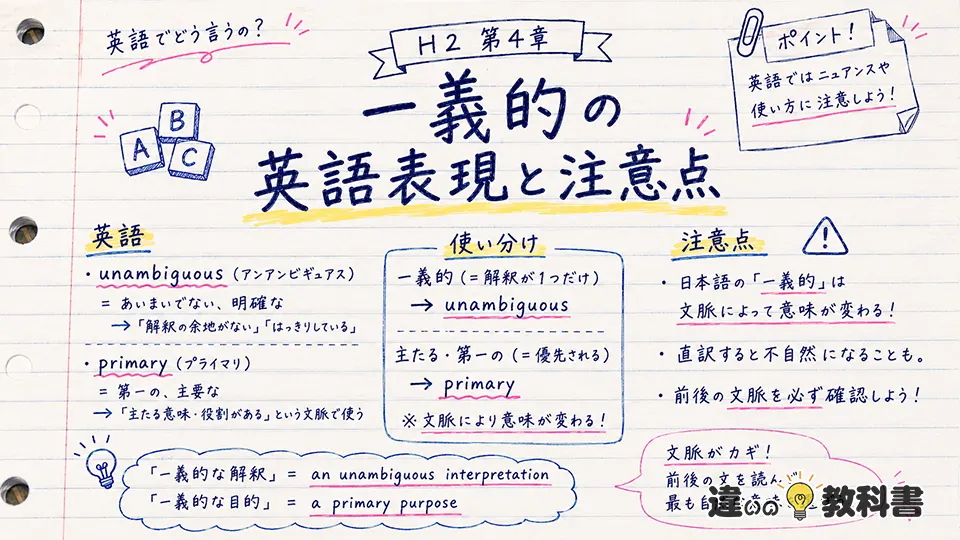 英語でどう言うの？
H2 第4章
一義的の
英語表現と注意点
ポイント！
英語ではニュアンスや
使い方に注意しよう！
A
B
C
英語
・unambiguous（アンアンビギュアス）
＝ あいまいでない、明確な
→「解釈の余地がない」「はっきりしている」
・primary（プライマリ）
＝ 第一の、主要な
→「主たる意味・役割がある」という文脈で使う
使い分け
一義的（＝解釈が1つだけ）
→ unambiguous
主たる・第一の（＝優先される）
→ primary
※文脈により意味が変わる！
注意点
・日本語の「一義的」は
文脈によって意味が変わる！
・直訳すると不自然になることも。
・前後の文脈を必ず確認しよう！
「一義的な解釈」＝ an unambiguous interpretation
「一義的な目的」＝ a primary purpose
文脈がカギ！
前後の文を読ん
最も自
違いの教科書